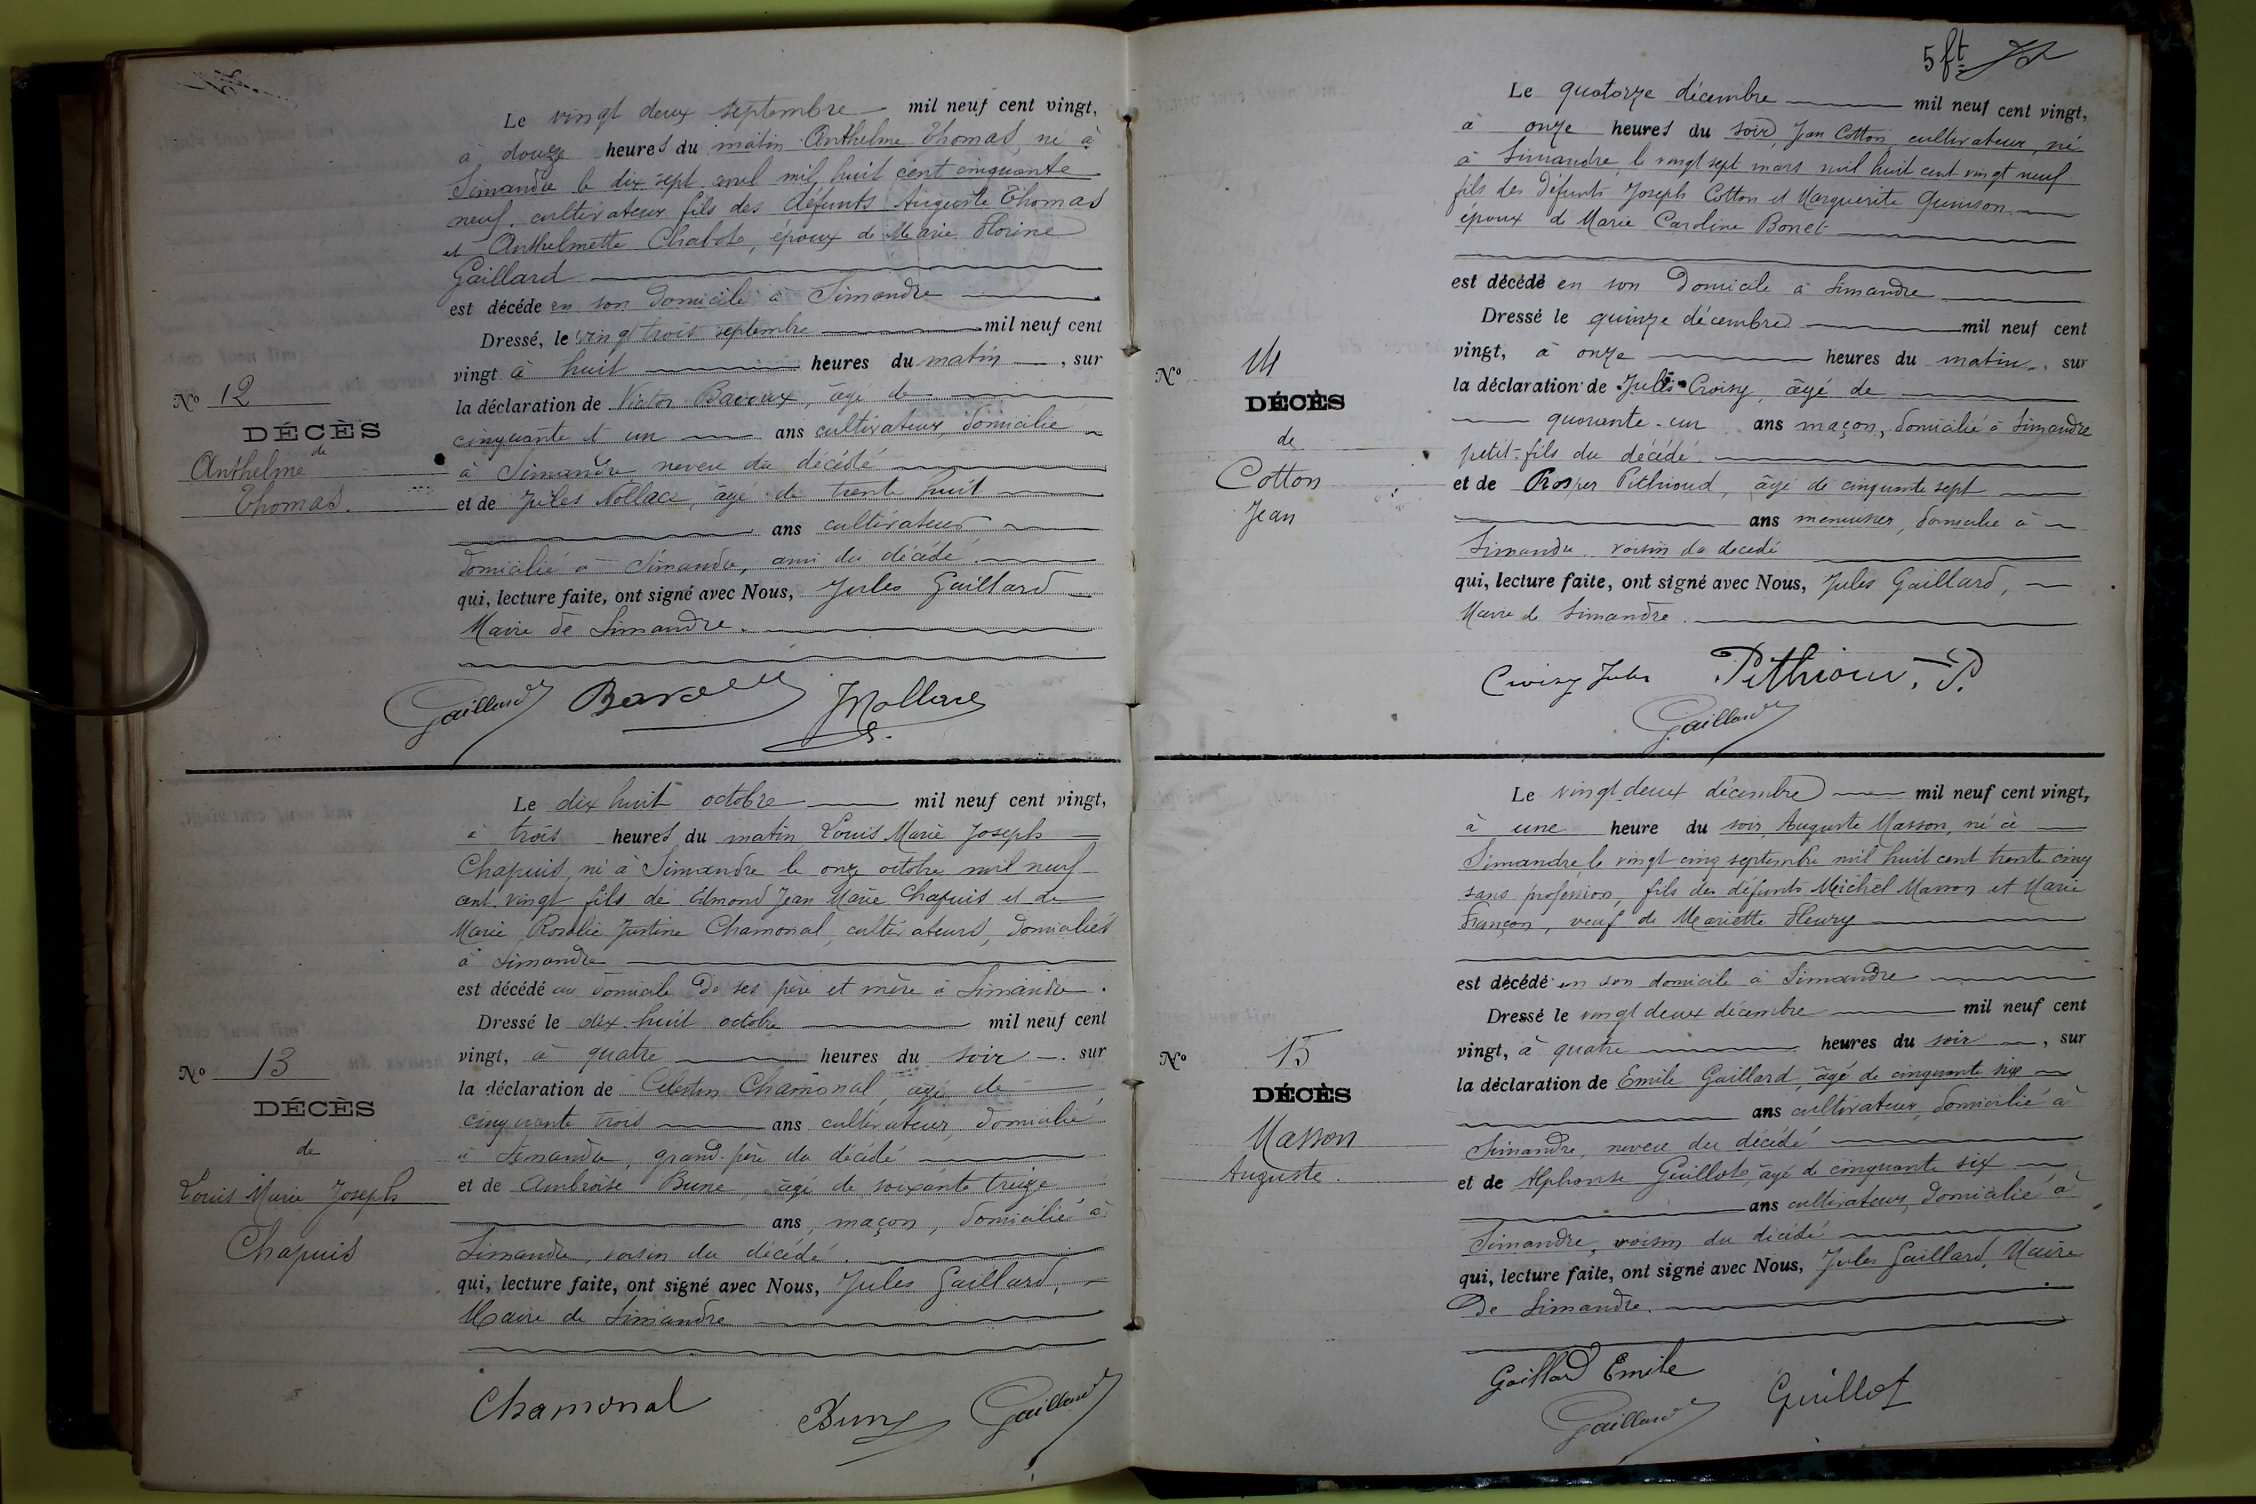 Le vingt deux septembre mil neuf cent vingt,
à douze heures du matin Anthelme Thomas, né à
Simandre le dix sept avril mil huit cent cinquante
neuf, cultivateur fils des défunts Auguste Thomas
et Anthelmette Chabot, époux de Marie Florine
Gaillard
est décédé en son domicile à Simandre
Dressé, le vingt trois septembre mil neuf cent
vingt à huit heures du matin, sur
la déclaration de Victor Bavoux, âgé de
cinquante et un ans cultivateur, domicilié
à Simandre neveu du décédé
et de Jules Nollace, âgé de trente huit
ans cultivateur
domicilié à Simandre, ami du décédé.
qui, lecture faite, ont signé avec Nous, Jules Gaillard
Maire de Simandre.
Gaillard
No 12
DÉCÈS
de
Anthelme
Thomas.
Le dix huit octobre mil neuf cent vingt,
à trois heures du matin Louis Marie Joseph
Chapuis, né à Simandre le onze octobre mil neuf
cent vingt fils de Edmond Jean Marie Chapuis et de
Marie Rosalie Justine Chamonal, cultivateurs, domiciliés
à Simandre
est décédé au domicile de ses père et mère à Simandre.
Dressé le dix-huit octobre mil neuf cent
vingt, à quatre heures du soir. sur
la déclaration de Célestin Chamonal, âgé de
cinquante trois ans cultivateur, domicilié
à Simandre, grand-père du décédé
et de Ambroise Bune, âgé de soixante treize
ans, maçon, domicilié à
Simandre, voisin du décédé.
qui, lecture faite, ont signé avec Nous, Jules Gaillard,
Maire de Simandre
Chamonal Gaillard
No 13
DÉCÈS
de
Louis Marie Joseph
Chapuis
5 ft
Le quatorze décembre mil neuf cent vingt,
à onze heures du soir, Jean Cotton, cultivateur, né
à Simandre, le vingt sept mars mil huit cent vingt neuf
fils des défunts Joseph Cotton et Marguerite Quinson
époux de Marie Caroline Bonet
est décédé en son domicile à Simandre
Dressé le quinze décembre mil neuf cent
vingt, à onze heures du matin, sur
la déclaration de Jules Croisy, âgé de
quarante-un ans maçon, domicilié à Simandre
petit-fils du décédé.
et de Prosper Pithioud, âgé de cinquante sept
ans menuisier, domicilié à
Simandre voisin du décédé
qui, lecture faite, ont signé avec Nous, Jules Gaillard,
Maire de Simandre.
Croisy Jules Pithioud. P.
Gaillard
No 14
DÉCÈS
de
Cotton
Jean
Le vingt deux décembre mil neuf cent vingt,
à une heure du soir, Auguste Masson, né à
Simandre, le vingt cinq septembre mil huit cent trente cinq
sans profession, fils des défunts Michel Masson et Marie
Françon, veuf de Mariette Fleury
est décédé en son domicile à Simandre
Dressé le vingt deux décembre mil neuf cent
vingt, à quatre heures du soir, sur
la déclaration de Emile Gaillard, âgé de cinquante six
ans cultivateur, domicilié à
Simandre, neveu du décédé
et de Alphonse Guillot, âgé de cinquante six
ans cultivateur, domicilié à
Simandre, voisin du décédé
qui, lecture faite, ont signé avec Nous, Jules Gaillard, Maire
de Simandre.
Gaillard Emile
Gaillard Guillot
No 15
DÉCÈS
Masson
Auguste.